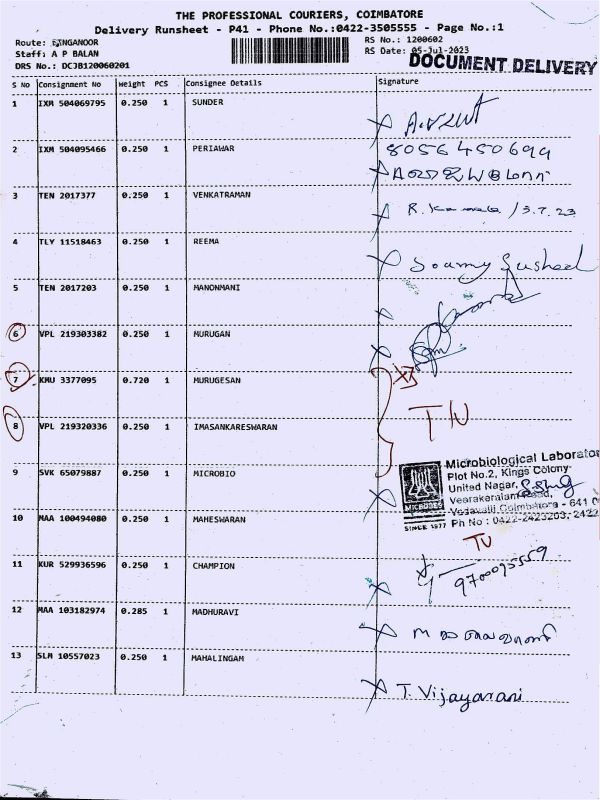 THE PROFESSIONAL COURIERS, COIMBATORE
Delivery Runsheet - P41 - Phone No.:0422-3505555 - Page No.:1
Route: EINGANOOR
RS No.: 1200602
Staff: A P BALAN
RS Date: 05-Jul-2023
DRS No.: DCJB120060201
DOCUMENT DELIVERY
S No Consignment No Weight PCS Consignee Details Signature
1 IXM 504069795 0.250 1 SUNDER
2 IXM 504095466 0.250 1 PERIAWAR 8056450699
3 TEN 2017377 0.250 1 VENKATRAMAN
4 TLY 11518463 0.250 1 REEMA
5 TEN 2017203 0.250 1 MANONMANI
6 VPL 219303382 0.250 1 MURUGAN
7 KMU 3377095 0.720 1 MURUGESAN
8 VPL 219320336 0.250 1 IMASANKARESWARAN
9 SVK 65079887 0.250 1 MICROBIO
Microbiological Laborator
Plot No.2, Kings Colony
United Nagar,
Veerakeralam Road,
Vedavalli Coimbatore - 641 0
MICROBES
SINCE 1977 Ph No : 0422-2423203, 2422
10 MAA 100494080 0.250 1 MAHESWARAN
11 KUR 529936596 0.250 1 CHAMPION 9700095559
12 MAA 103182974 0.285 1 MADHURAVI
13 SLM 10557023 0.250 1 MAHALINGAM T. Vijayarani